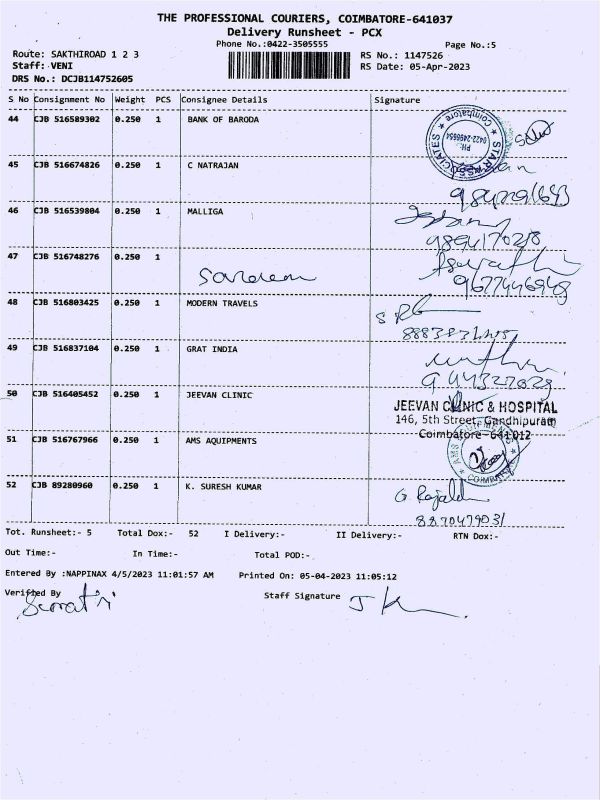 THE PROFESSIONAL COURIERS, COIMBATORE-641037
Delivery Runsheet - PCX
Phone No.:0422-3505555 Page No.:5
Route: SAKTHIROAD 1 2 3 RS No.: 1147526
Staff: VENI RS Date: 05-Apr-2023
DRS No.: DCJB114752605
S No Consignment No Weight PCS Consignee Details Signature
44 CJB 516589302 0.250 1 BANK OF BARODA
STAR ASSOCIATES Coimbatore PH: 0422-2456654
45 CJB 516674826 0.250 1 C NATRAJAN
46 CJB 516539804 0.250 1 MALLIGA
9894170258
47 CJB 516748276 0.250 1
9677446948
48 CJB 516803425 0.250 1 MODERN TRAVELS
49 CJB 516837104 0.250 1 GRAT INDIA
50 CJB 516405452 0.250 1 JEEVAN CLINIC
JEEVAN CLINIC & HOSPITAL
146, 5th Street, Gandhipuram
Coimbatore-641012
51 CJB 516767966 0.250 1 AMS AQUIPMENTS
AMS COIMBATORE
52 CJB 89280960 0.250 1 K. SURESH KUMAR
8870479031
Tot. Runsheet:- 5 Total Dox:- 52 I Delivery:- II Delivery:- RTN Dox:-
Out Time:- In Time:- Total POD:-
Entered By :NAPPINAX 4/5/2023 11:01:57 AM Printed On: 05-04-2023 11:05:12
Verified By Staff Signature